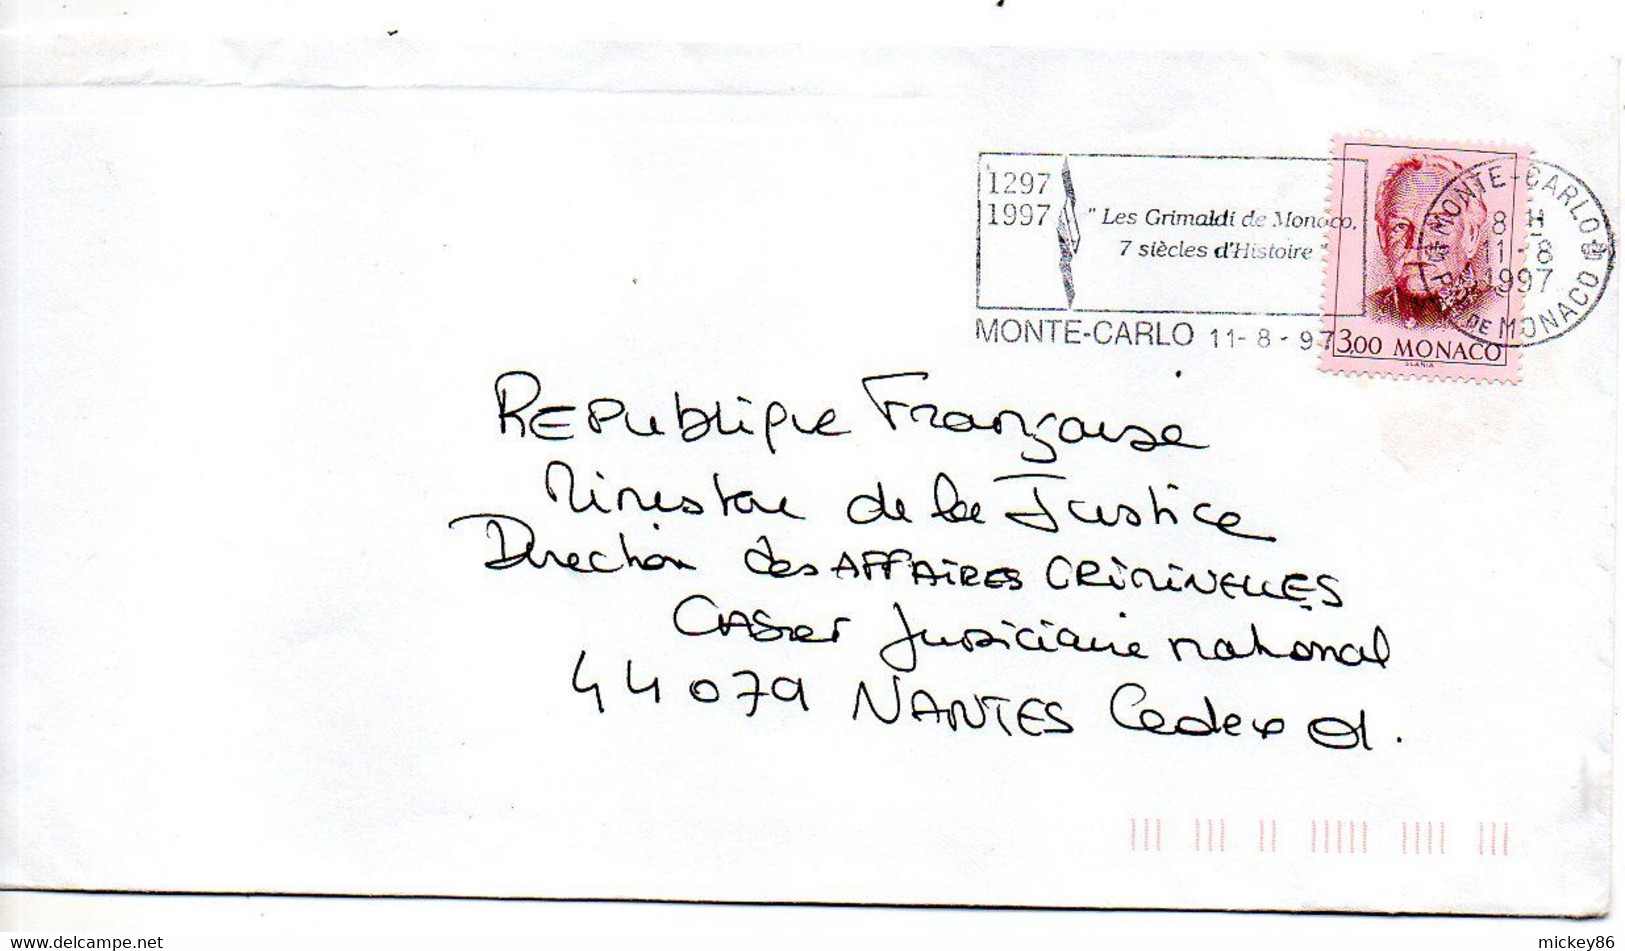 1297
1997
" Les Grimaldi de Monaco,
7 siècles d'Histoire "
MONTE-CARLO 11-8-97
MONTE-CARLO
8 H
11-8
1997
DE MONACO
3,00 MONACO
SLANIA
REPublique Française
Ministère de la Justice
Direction des AFFAIRES CRIMINELLES
CASier Judiciaire national
44079 NANTES Cedex 01.
www.delcampe.net
mickey86